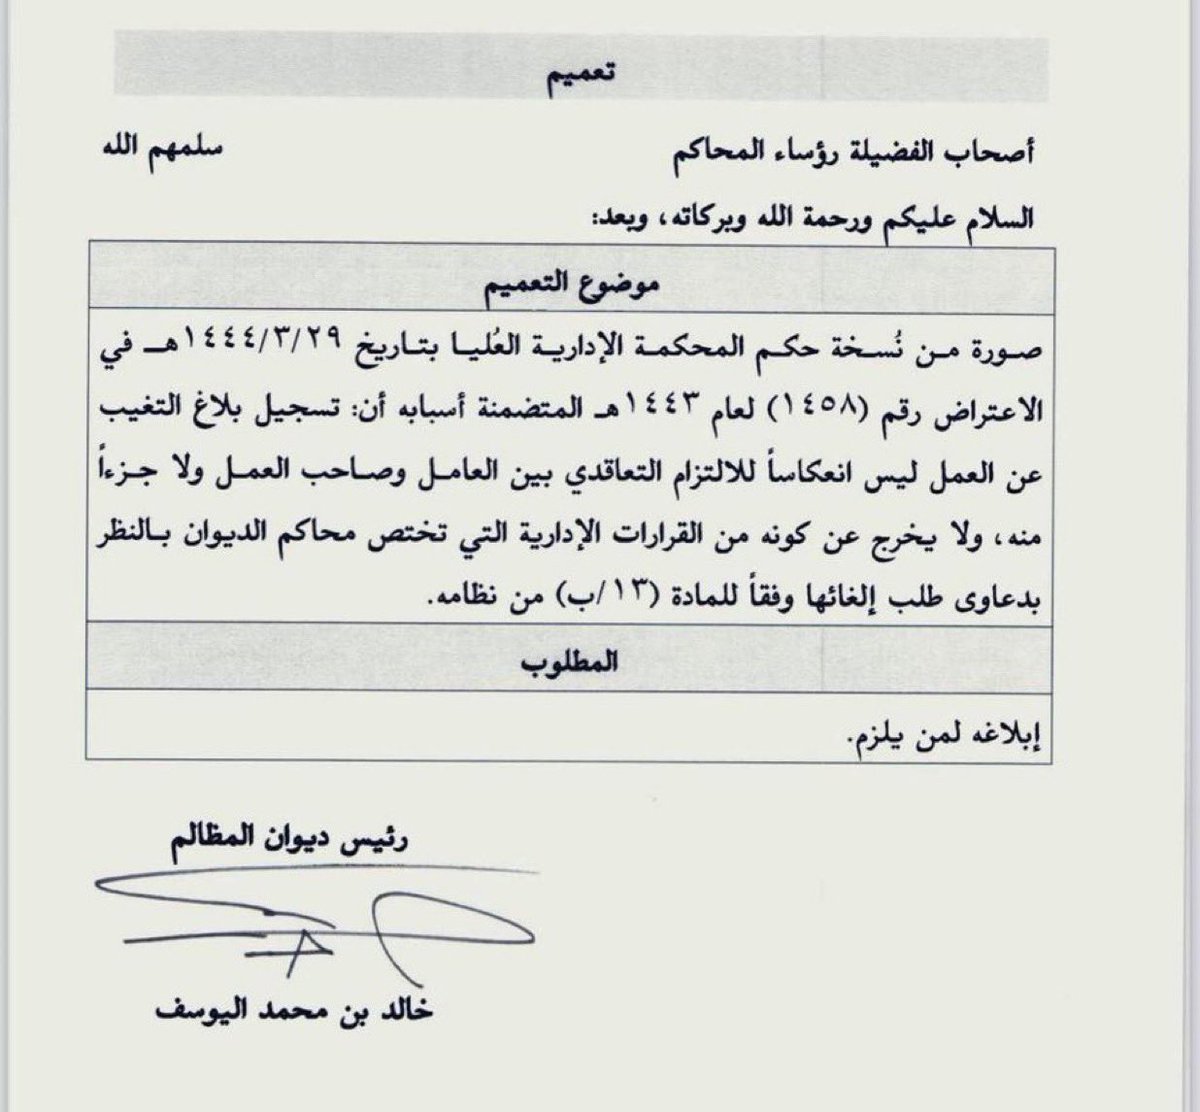 تعميم
أصحاب الفضيلة رؤساء المحاكم سلمهم الله
السلام عليكم ورحمة الله وبركاته، وبعد:
موضوع التعميم
صورة من نُسخة حكم المحكمة الإدارية العُليا بتاريخ ١٤٤٤/٣/٢٩هـ في
الاعتراض رقم (١٤٥٨) لعام ١٤٤٣هـ المتضمنة أسبابه أن: تسجيل بلاغ التغيب
عن العمل ليس انعكاساً للالتزام التعاقدي بين العامل وصاحب العمل ولا جزءاً
منه، ولا يخرج عن كونه من القرارات الإدارية التي تختص محاكم الديوان بالنظر
بدعاوى طلب إلغائها وفقاً للمادة (١٣/ب) من نظامه.
المطلوب
إبلاغه لمن يلزم.
رئيس ديوان المظالم
خالد بن محمد اليوسف